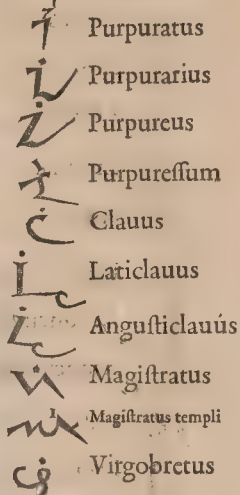 Purpuratus
Purpurarius
Purpureus
Purpureſſum
Clauus
Laticlauus
Anguſticlauús
Magiſtratus
Magiſtratus templi
Virgobretus